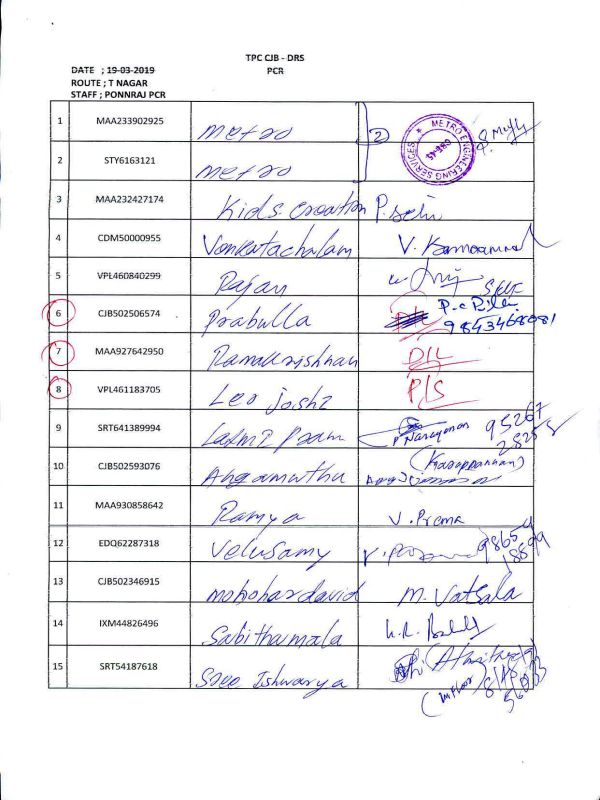 TPC CJB - DRS
DATE ; 19-03-2019
PCR
ROUTE ; T NAGAR
STAFF ; PONNRAJ PCR
1 MAA233902925 metro 2
METRO ENGINEERING SERVICES
CBE-45
2 STY6163121 metro
3 MAA232427174 Kids creation P. Selvi
4 CDM50000955 Venkatachalam V.
5 VPL460840299 Rajan
6 CJB502506574 Prabulla 9843468081
7 MAA927642950 Ramakrishnan D/L
8 VPL461183705 Leo joshz P/S
9 SRT641389994 P Narayanan 95267
28258
10 CJB502593076 Angamuthu (Karuppannan)
11 MAA930858642 Ramya V. Prema
12 EDQ62287318 Velusamy 98654
18899
13 CJB502346915 Manohar david M. Vatsala
14 IXM44826496 Sabithamala
15 SRT54187618 Sree Ishwarya